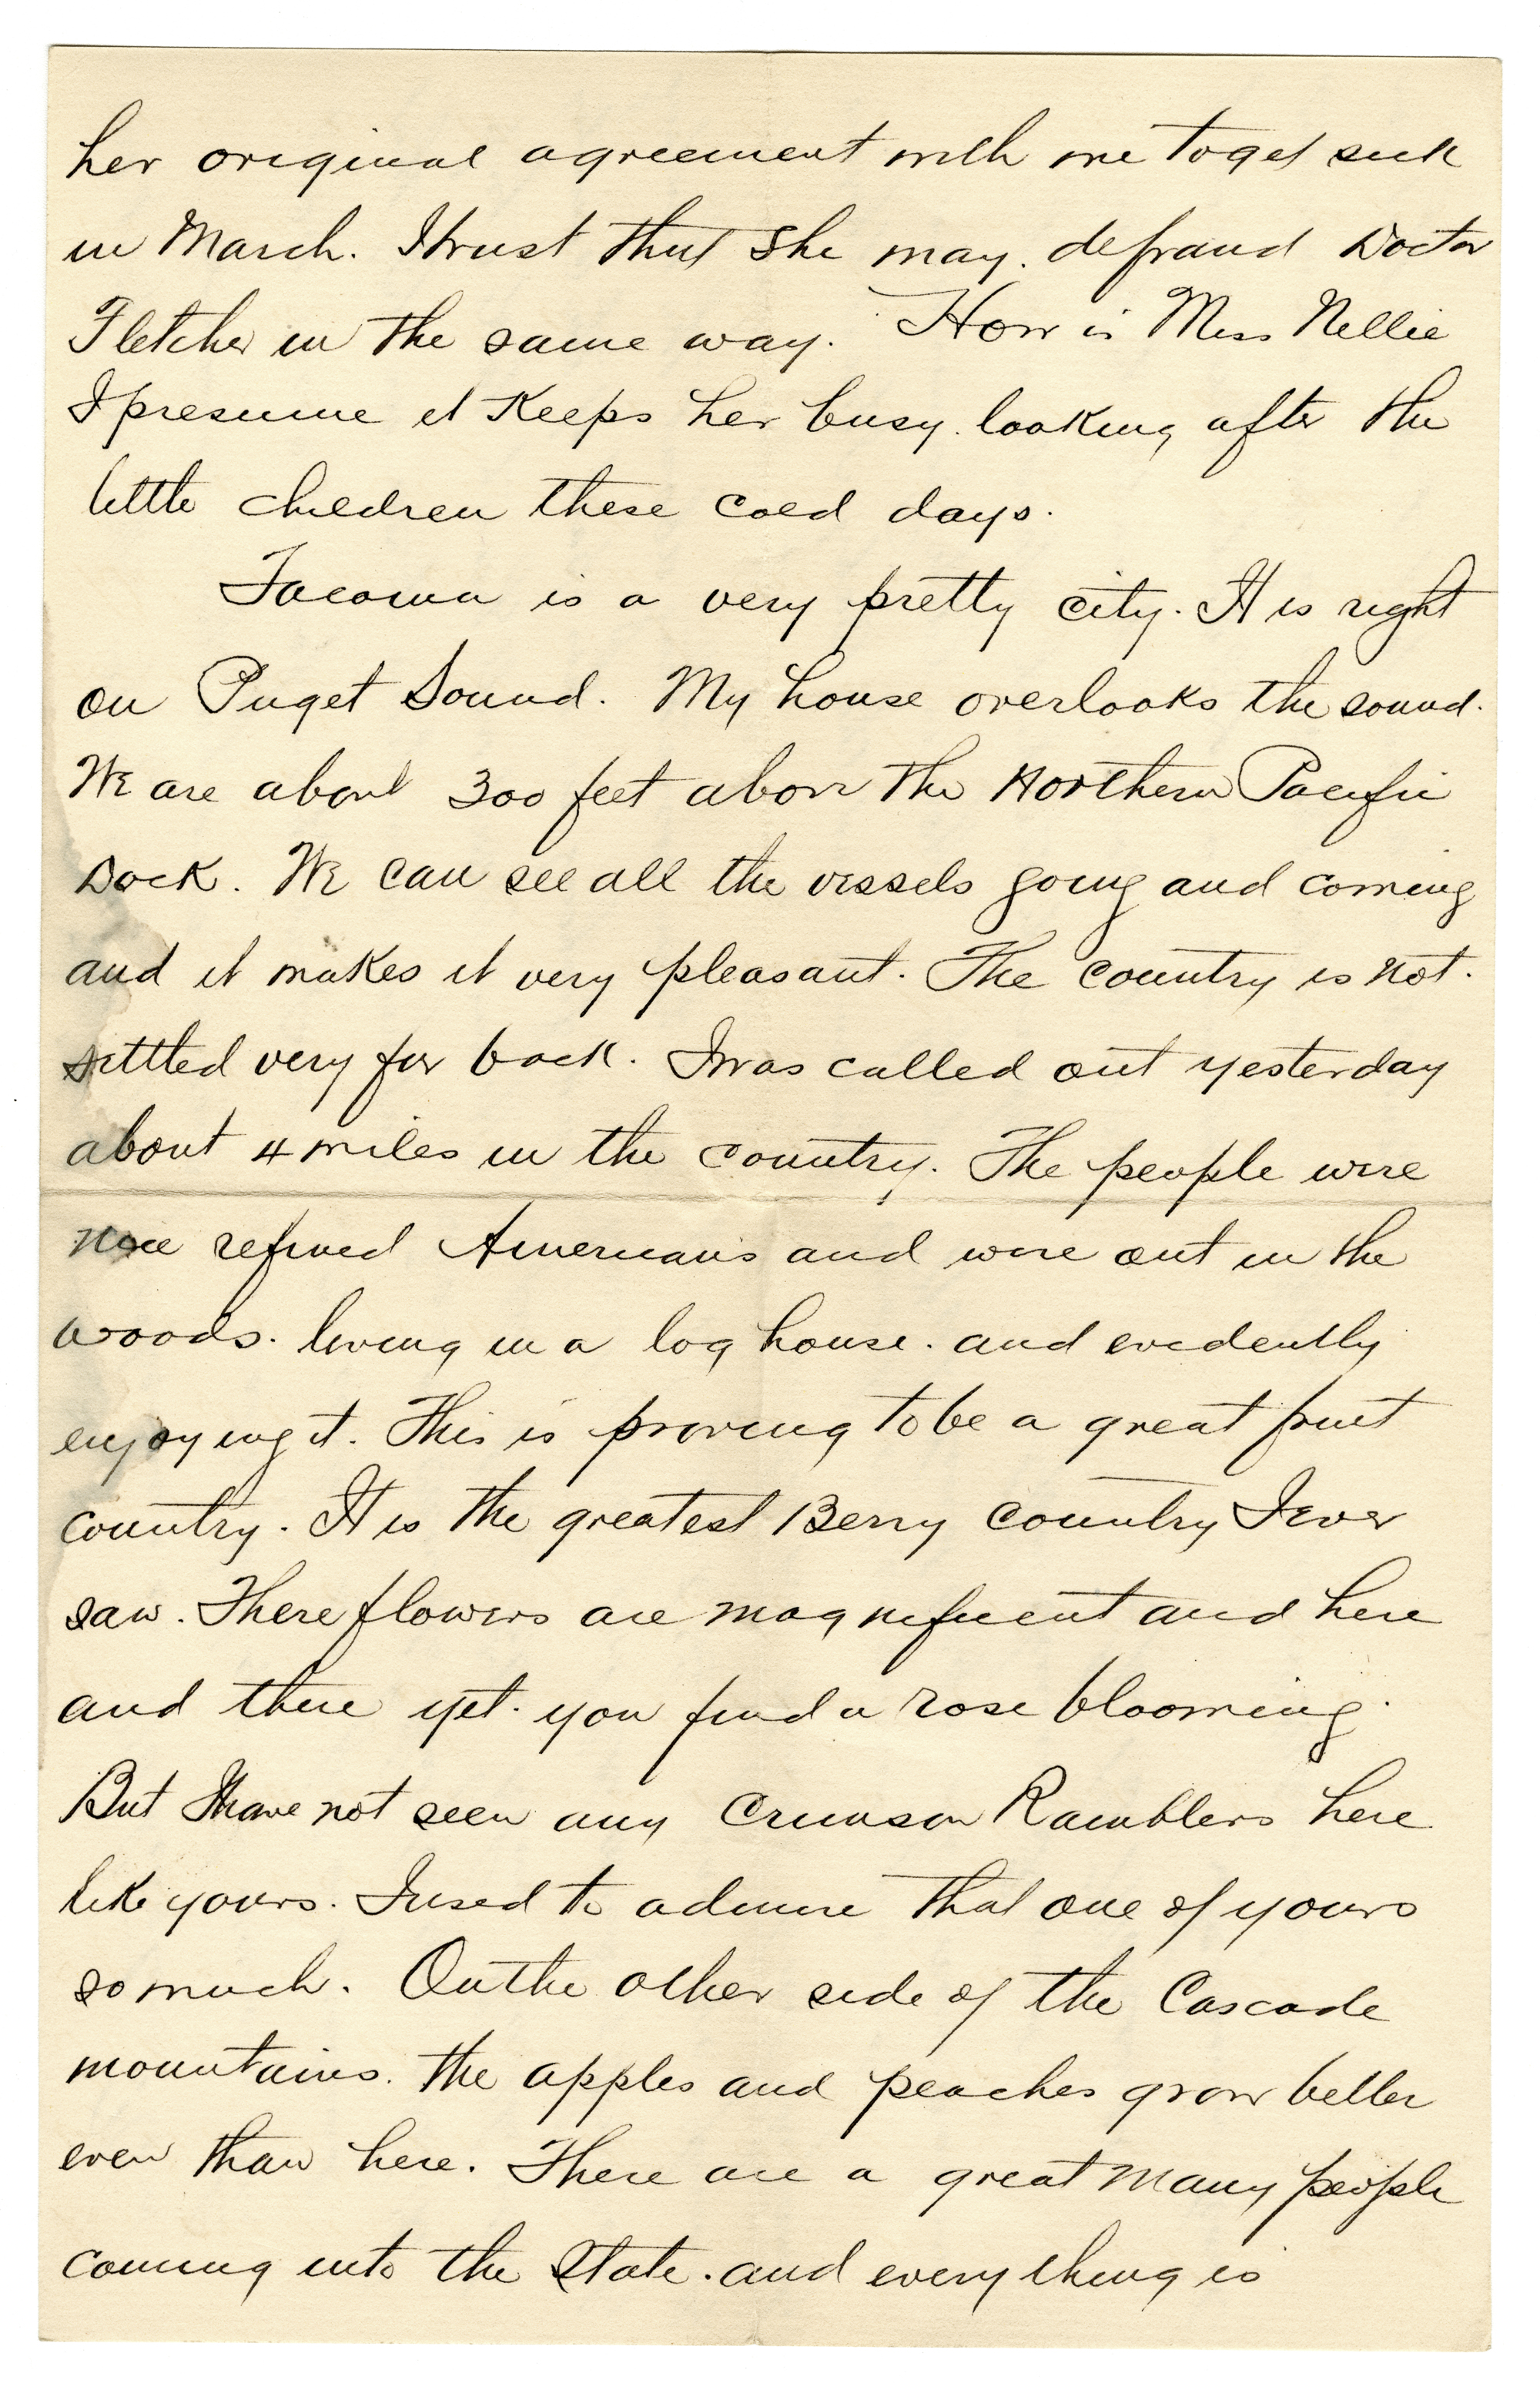 her original agreement with me to get sick
in March. I trust that she may. defraud Doctor
Fletcher in the same way. How is Miss Nellie
I presume it keeps her busy. looking after the
little children these cold days.
Tacoma is a very pretty city. It is right
on Puget Sound. My house overlooks the sound.
We are about 300 feet above the Northern Pacific
Dock. We can see all the vessels going and coming
and it makes it very pleasant. The country is not.
settled very far back. I was called out yesterday
about 4 miles in the country. The people were
nice refined Americans and were out in the
woods. living in a log house. and evidently
enjoying it. This is proving to be a great fruit
country. It is the greatest Berry country I ever
saw. There flowers are magnificent and here
and there yet. you find a rose blooming.
But I have not seen any Crimson Ramblers here
like yours. I used to admire that one of yours
so much. On the other side of the Cascade
mountains. the apples and peaches grow better
even than here. There are a great many people
coming into the State. and everything is